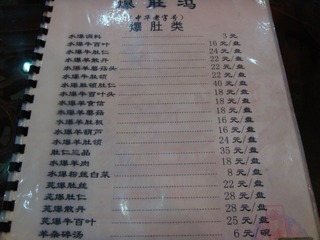 爆肚冯
(中华老字号)
爆肚类
水爆调料 3 元/
水爆牛百叶 16 元/盘
水爆牛肚仁 24 元/盘
水爆羊散丹 22 元/盘
水爆羊蘑菇头 22 元/盘
水爆牛肚领 22 元/盘
水爆肚领肚仁 40 元/盘
水爆牛百叶头 18 元/盘
水爆羊食信 18 元/盘
水爆羊肚板 18 元/盘
水爆羊葫芦 18 元/盘
水爆羊肚领 24 元/盘
肚仁三品 35 元/盘
水爆羊肉 18 元/盘
水爆粉丝白菜 8 元/盘
芫爆肚丝 22 元/盘
芫爆肚仁 28 元/盘
芫爆散丹 28 元/盘
芫爆牛百叶 25 元/盘
羊杂碎汤 6 元/碗